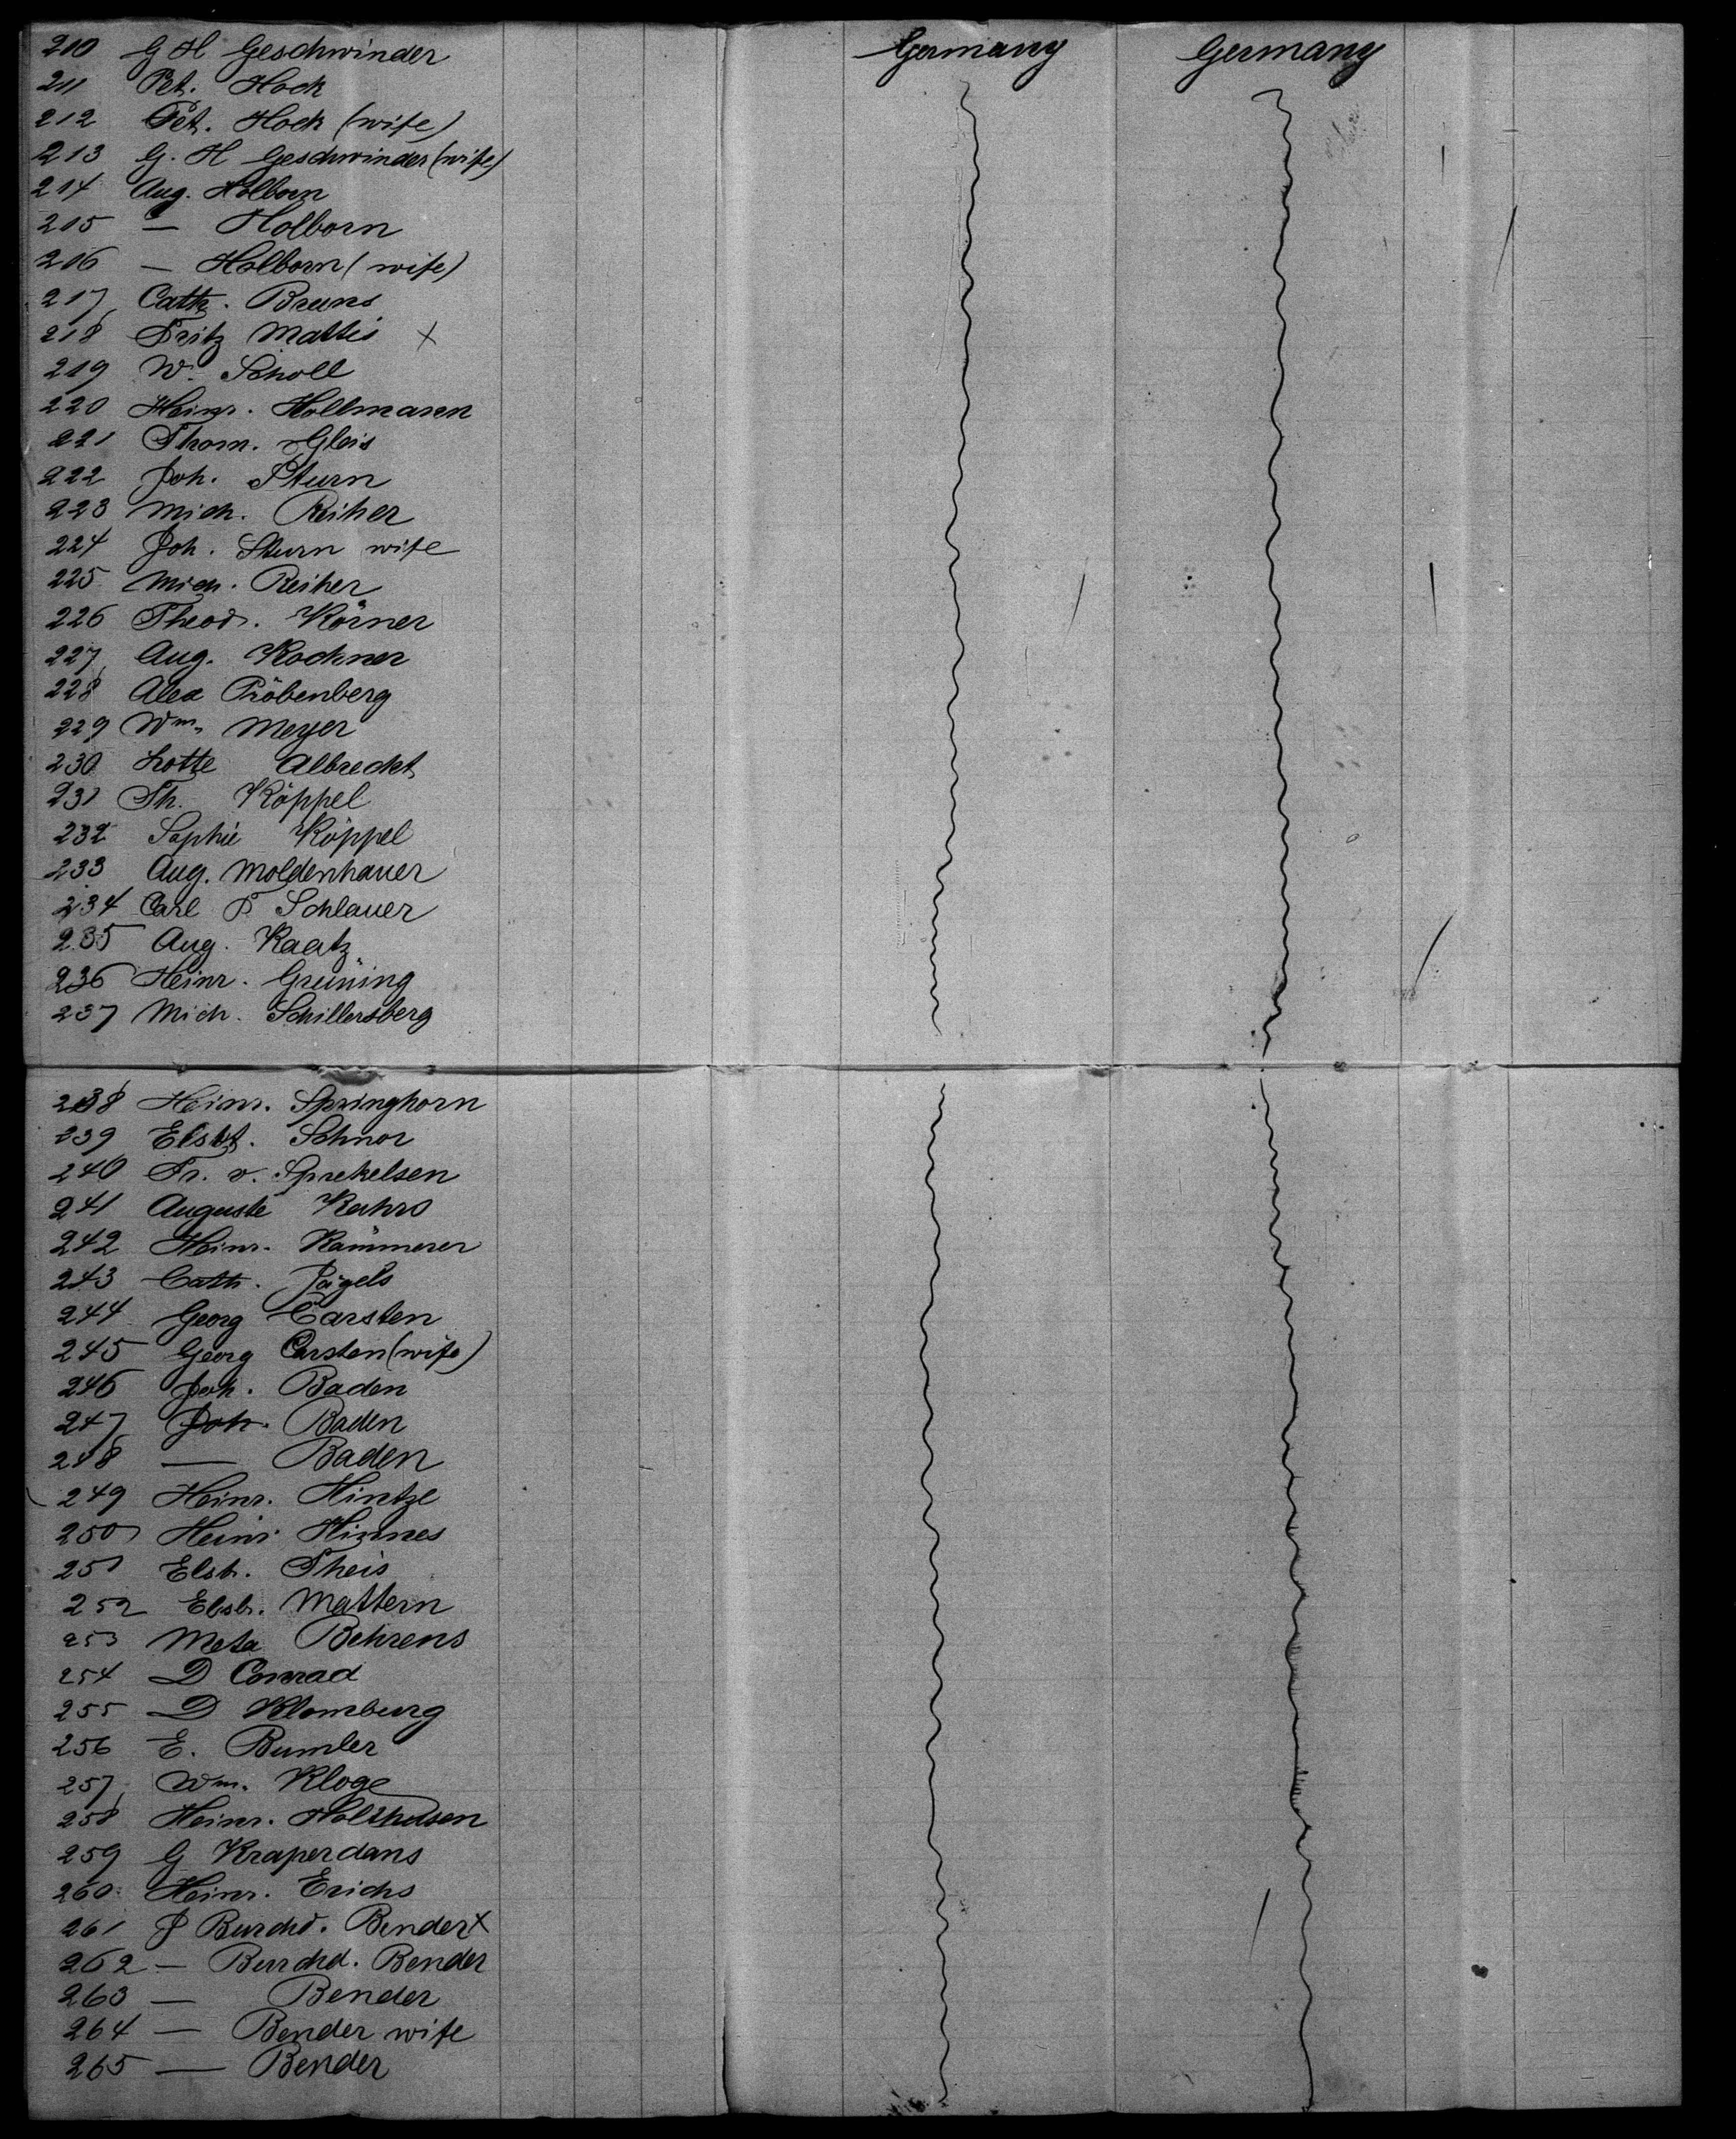 210 G H Geschwinder Germany Germany
211 Pet. Hock
212 Pet. Hock (wife)
213 G. H Geschwinder (wife)
214 Aug. Holborn
215 — Holborn
216 — Holborn (wife)
217 Cath. Bruns
218 Fritz Mattis X
219 W. Scholl
220 Heinr. Hollmann
221 Thom. Gleis
222 Joh. Sturn
223 Mich. Reiher
224 Joh. Sturn wife
225 Mich. Reiher
226 Theod. Körner
227 Aug. Kochner
228 Alex Pröbenberg
229 Wm. Meyer
230 Lotte Albrecht
231 Th. Köppel
232 Sophie Köppel
233 Aug. Moldenhauer
234 Carl F Schlauer
235 Aug. Kaatz
236 Heinr. Grüning
237 Mich. Schillersberg
238 Heinr. Springhorn
239 Elsbt. Schnor
240 Fr. v. Sprekelsen
241 Auguste Kahrs
242 Heinr. Kämmerer
243 Cath. Jägels
244 Georg Carsten
245 Georg Carsten (wife)
246 Joh. Baden
247 Joh. Baden
248 — Baden
249 Heinr. Hintze
250 Heinr. Hinnes
251 Elsb. Theis
252 Elsb. Mattern
253 Meta Behrens
254 D Conrad
255 D Klomburg
256 E. Bumler
257 Wm. Kloge
258 Heinr. Holthusen
259 G Kraperdans
260 Heinr. Erichs
261 J Burchd. Bender X
262 — Burchd. Bender
263 — Bender
264 — Bender wife
265 — Bender